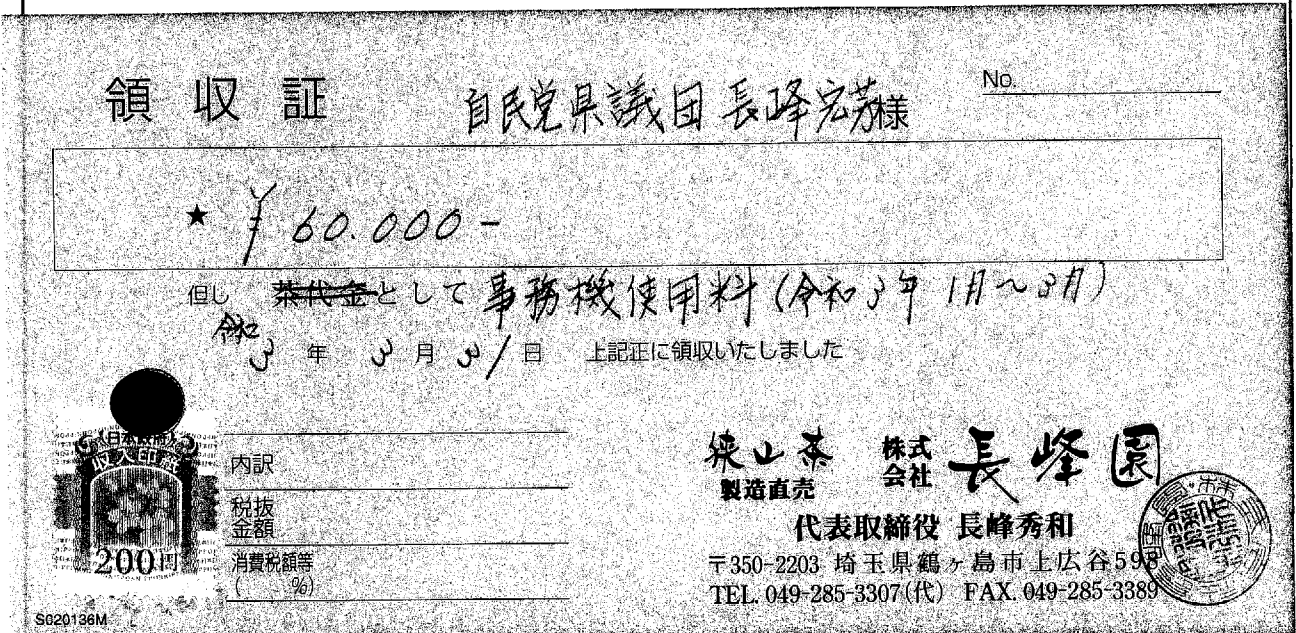 領収証 自民党県議団 長峰宏芳様 No.
★ ¥60.000-
但し 茶代金として 事務機使用料(令和3年1月~3月)
令和3年3月31日 上記正に領収いたしました
日本政府
収入印紙
200円
内訳
税抜金額
消費税額等
( %)
狭山茶 製造直売 株式会社 長峰園
代表取締役 長峰秀和
〒350-2203 埼玉県鶴ヶ島市上広谷598
TEL. 049-285-3307(代) FAX. 049-285-3389
S020136M